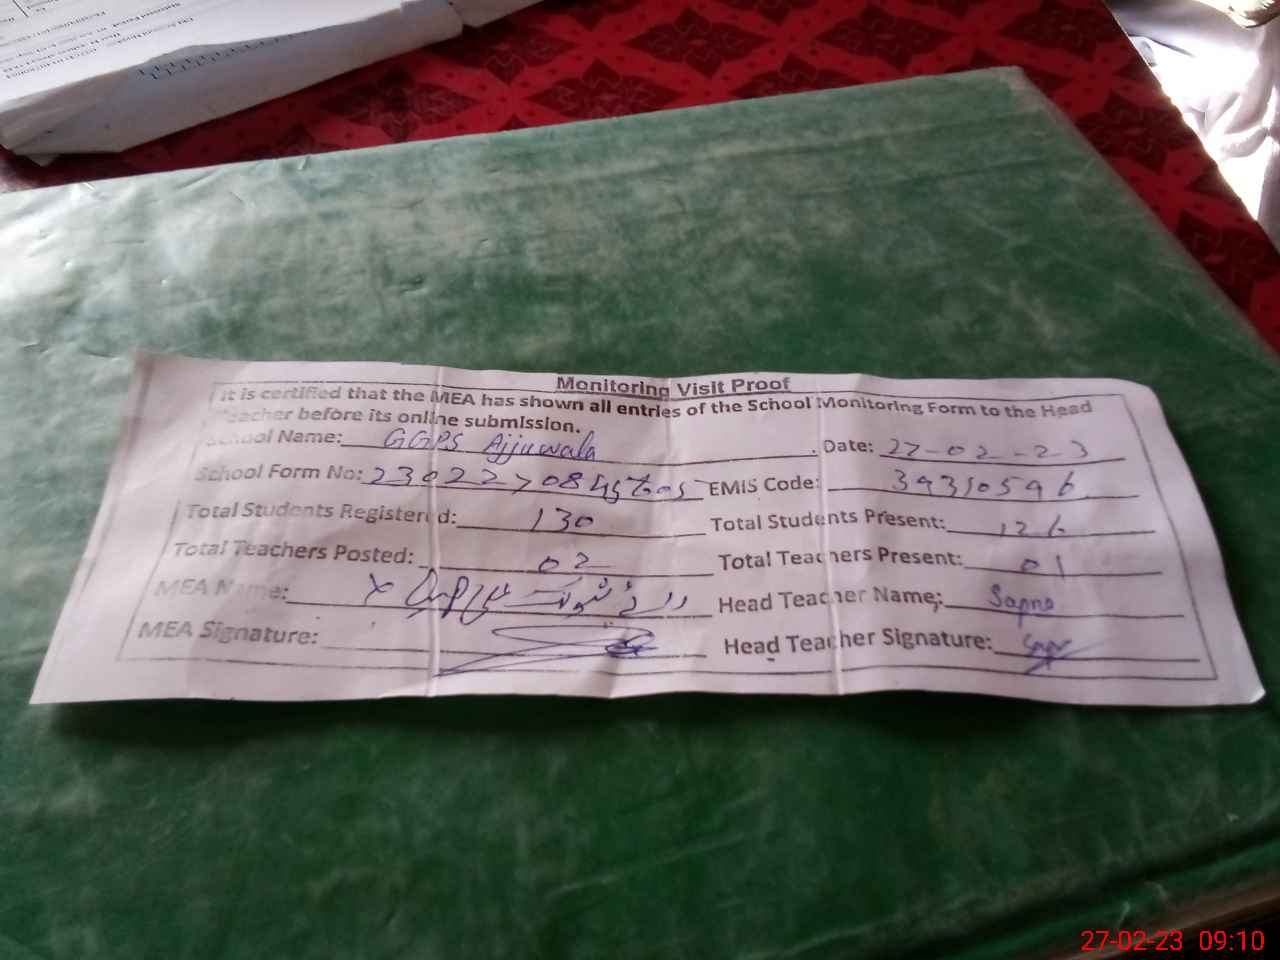 Monitoring Visit Proof
It is certified that the MEA has shown all entries of the School Monitoring Form to the Head
Teacher before its online submission.
School Name: GGPS Ajjuwala Date: 27-02-23
School Form No: EMIS Code: 39310596
Total Students Registered: 130 Total Students Present: 126
Total Teachers Posted: 02 Total Teachers Present: 01
MEA Name: Head Teacher Name: Sapna
MEA Signature: Head Teacher Signature:
27-02-23 09:10